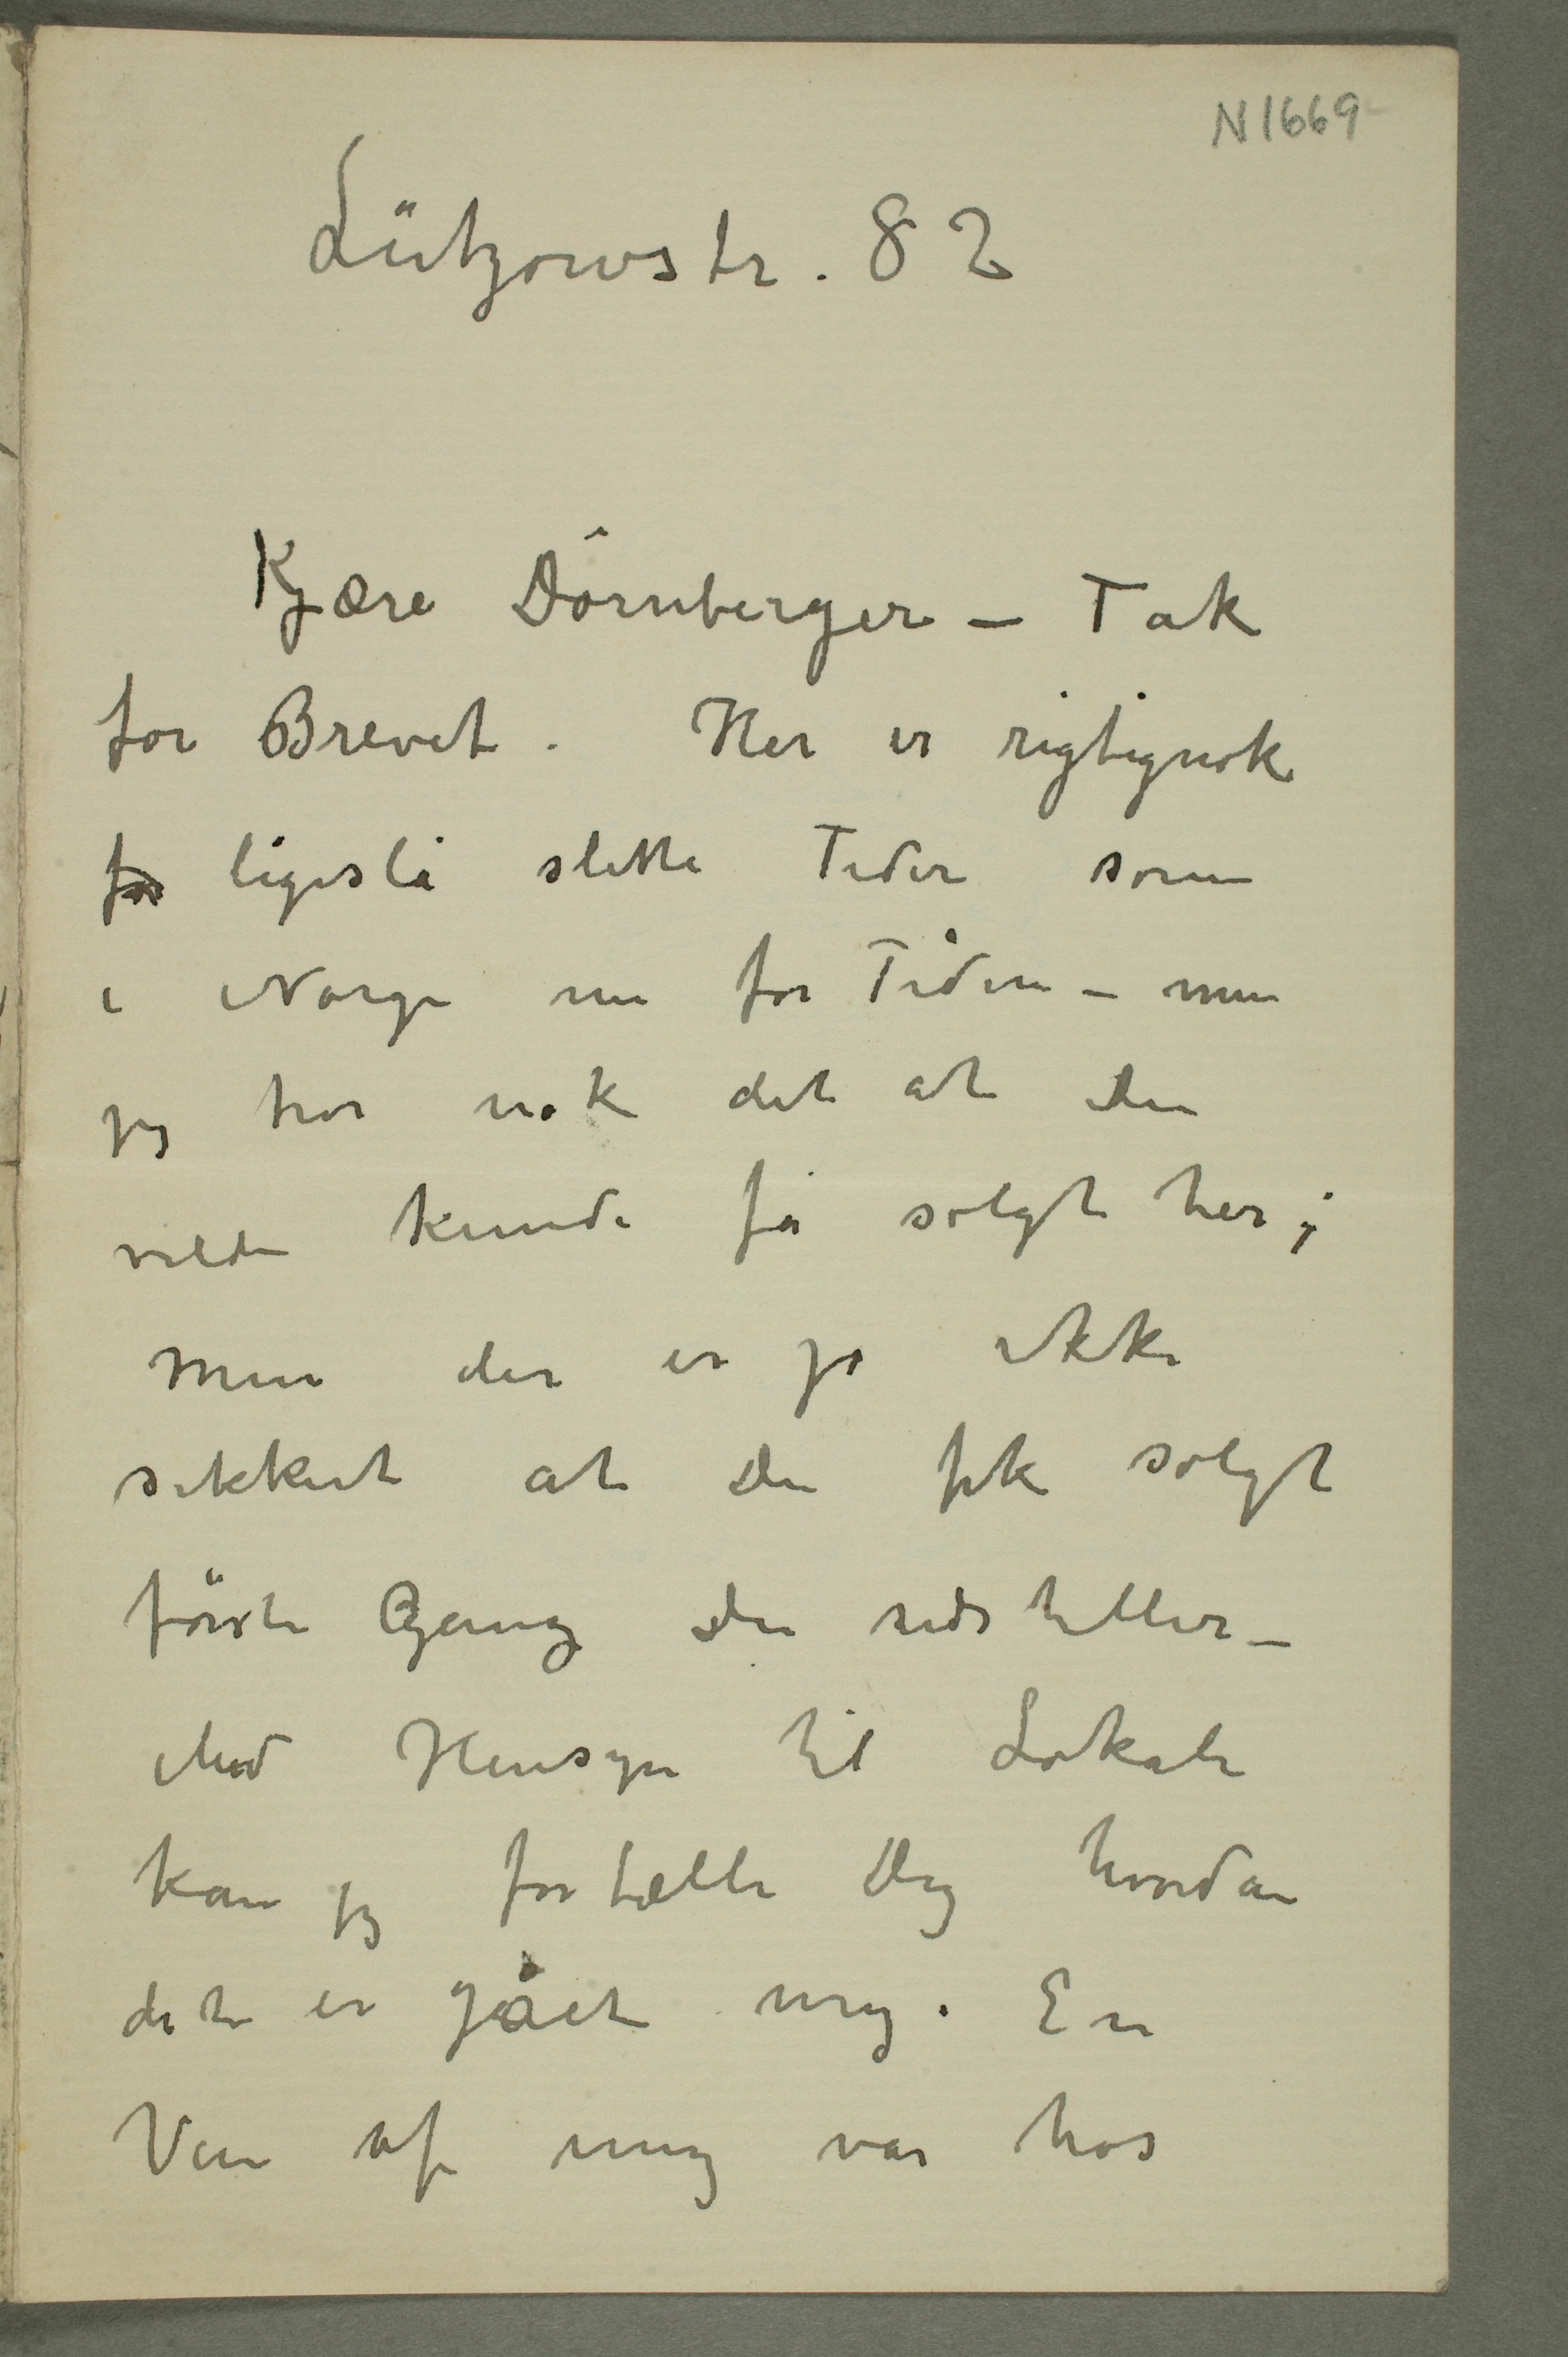 N 1669
Lützowstr. 82
Kjære Dørnberger – Tak
for Brevet. Her er rigtignok
for ligeslå slette Tider som
i Norge nu for Tiden – men
jeg tror nok det at Du
vilde kunde få solgt her;
men der er jo ikke
sikkert at Du fik solgt
förste Gang Du udstiller –
Med Hensyn til Lokale
kan jeg fortælle Dig hvordan
det er gået mig. En
Ven af mig var hos